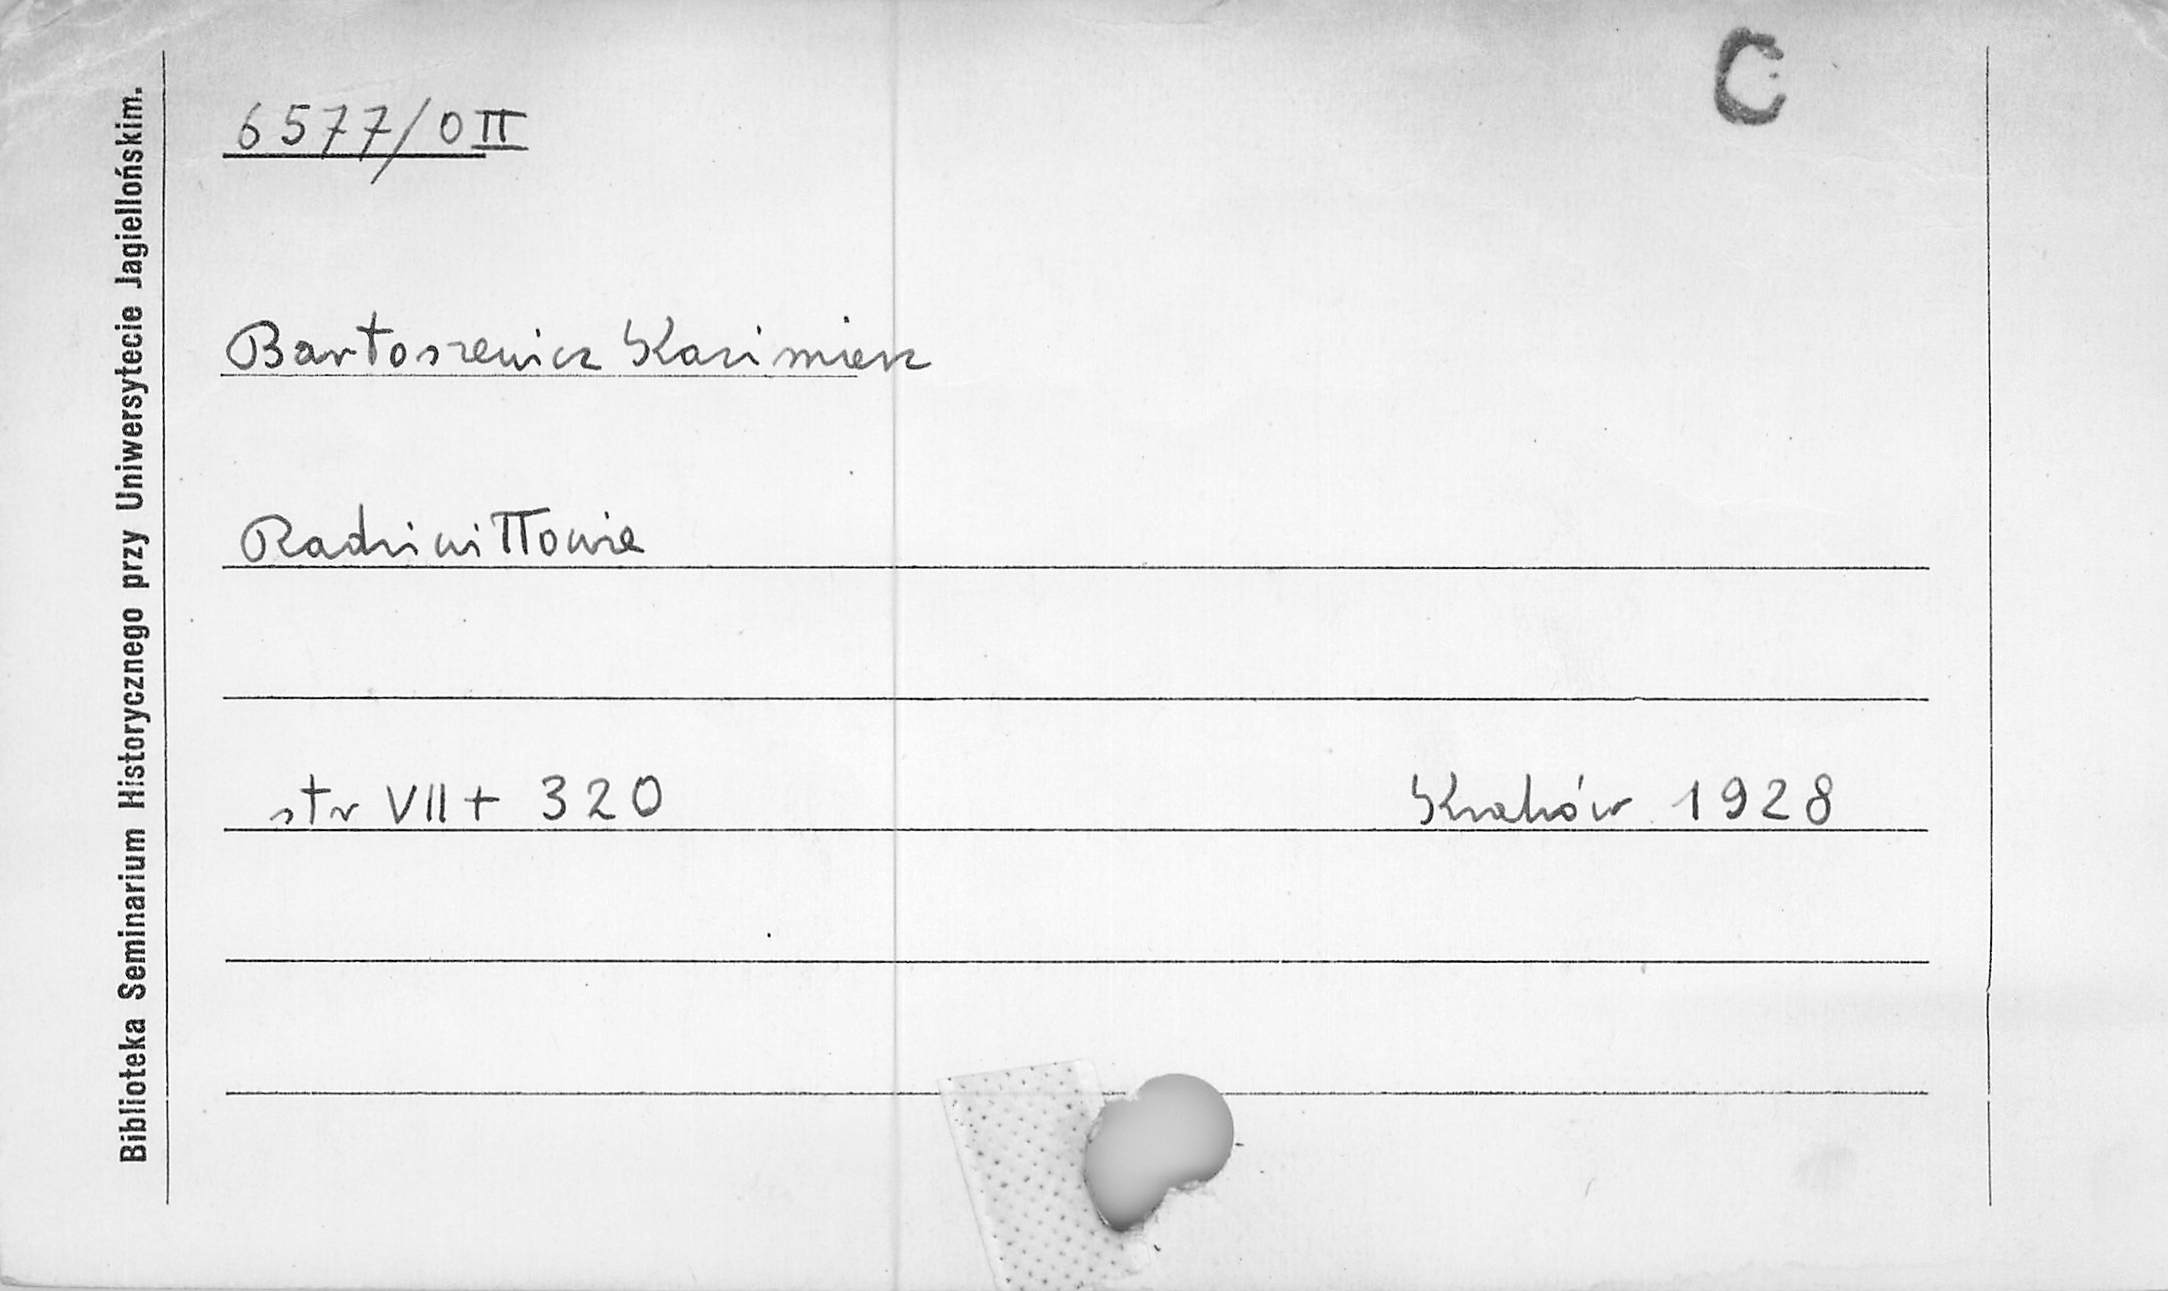 C
6577/0 II
Bartoszewicz Kazimierz
Radziwiłłowie
str VII + 320 Kraków 1928
Biblioteka Seminarium Historycznego przy Uniwersytecie Jagiellońskim.